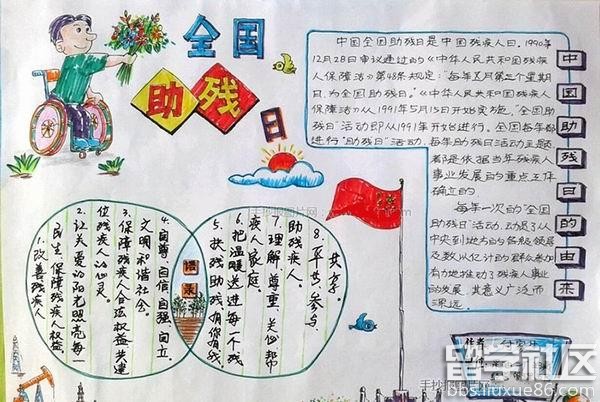 全国
助残
日
中国全国助残日是中国残疾人日。1990年
12月28日审议通过的《中华人民共和国残疾
人保障法》第48条规定:"每年五月第三个星期
日,为全国助残日。"《中华人民共和国残疾人
保障法》从1991年5月15日开始实施,"全国助
残日"活动即从1991年开始进行。全国每年都
进行"助残日"活动,每年助残日活动主题
都是依据当年残疾人
事业发展的重点工作
确立的
每年一次的"全国
助残日"活动,动员了从
中央到地方的各级领导
及数以亿计的群众参加
有力地推动了残疾人事业
的发展,其意义广泛而
深远.
中国助残日的由来
1.改善残疾人
民生,保障残疾人权益。
2.让关爱的阳光照亮每一
位残疾人的心灵。
3.保障残疾人合法权益 共建
文明和谐社会。
4.自尊 自信 自强 自立
语录
5.扶残助残,有你有我。
6.把温暖送进每一个残
疾人家庭。
7.理解 尊重 关心 帮
助残疾人。
8.平等 参与
共享。
留学社区
bbs.liuxue86.com